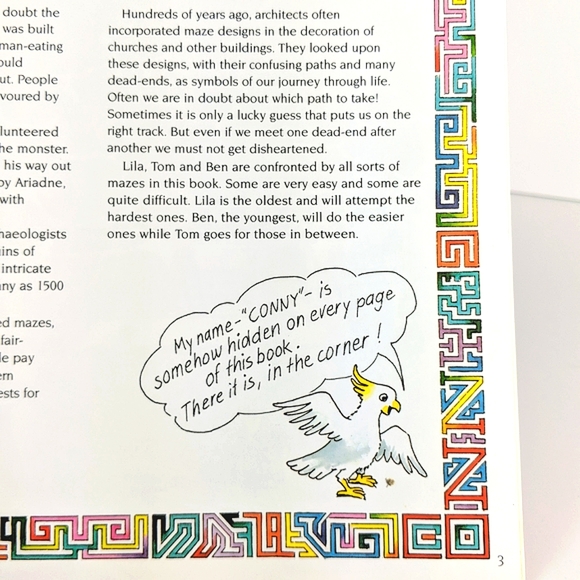 doubt the
was built
man-eating
ould
ut. People
voured by
lunteered
he monster.
his way out
by Ariadne,
with
haeologists
ins of
intricate
ny as 1500
ed mazes,
fair-
le pay
ern
ests for
Hundreds of years ago, architects often
incorporated maze designs in the decoration of
churches and other buildings. They looked upon
these designs, with their confusing paths and many
dead-ends, as symbols of our journey through life.
Often we are in doubt about which path to take!
Sometimes it is only a lucky guess that puts us on the
right track. But even if we meet one dead-end after
another we must not get disheartened.
Lila, Tom and Ben are confronted by all sorts of
mazes in this book. Some are very easy and some are
quite difficult. Lila is the oldest and will attempt the
hardest ones. Ben, the youngest, will do the easier
ones while Tom goes for those in between.
My name-"CONNY"- is
somehow hidden on every page
of this book.
There it is, in the corner!
3